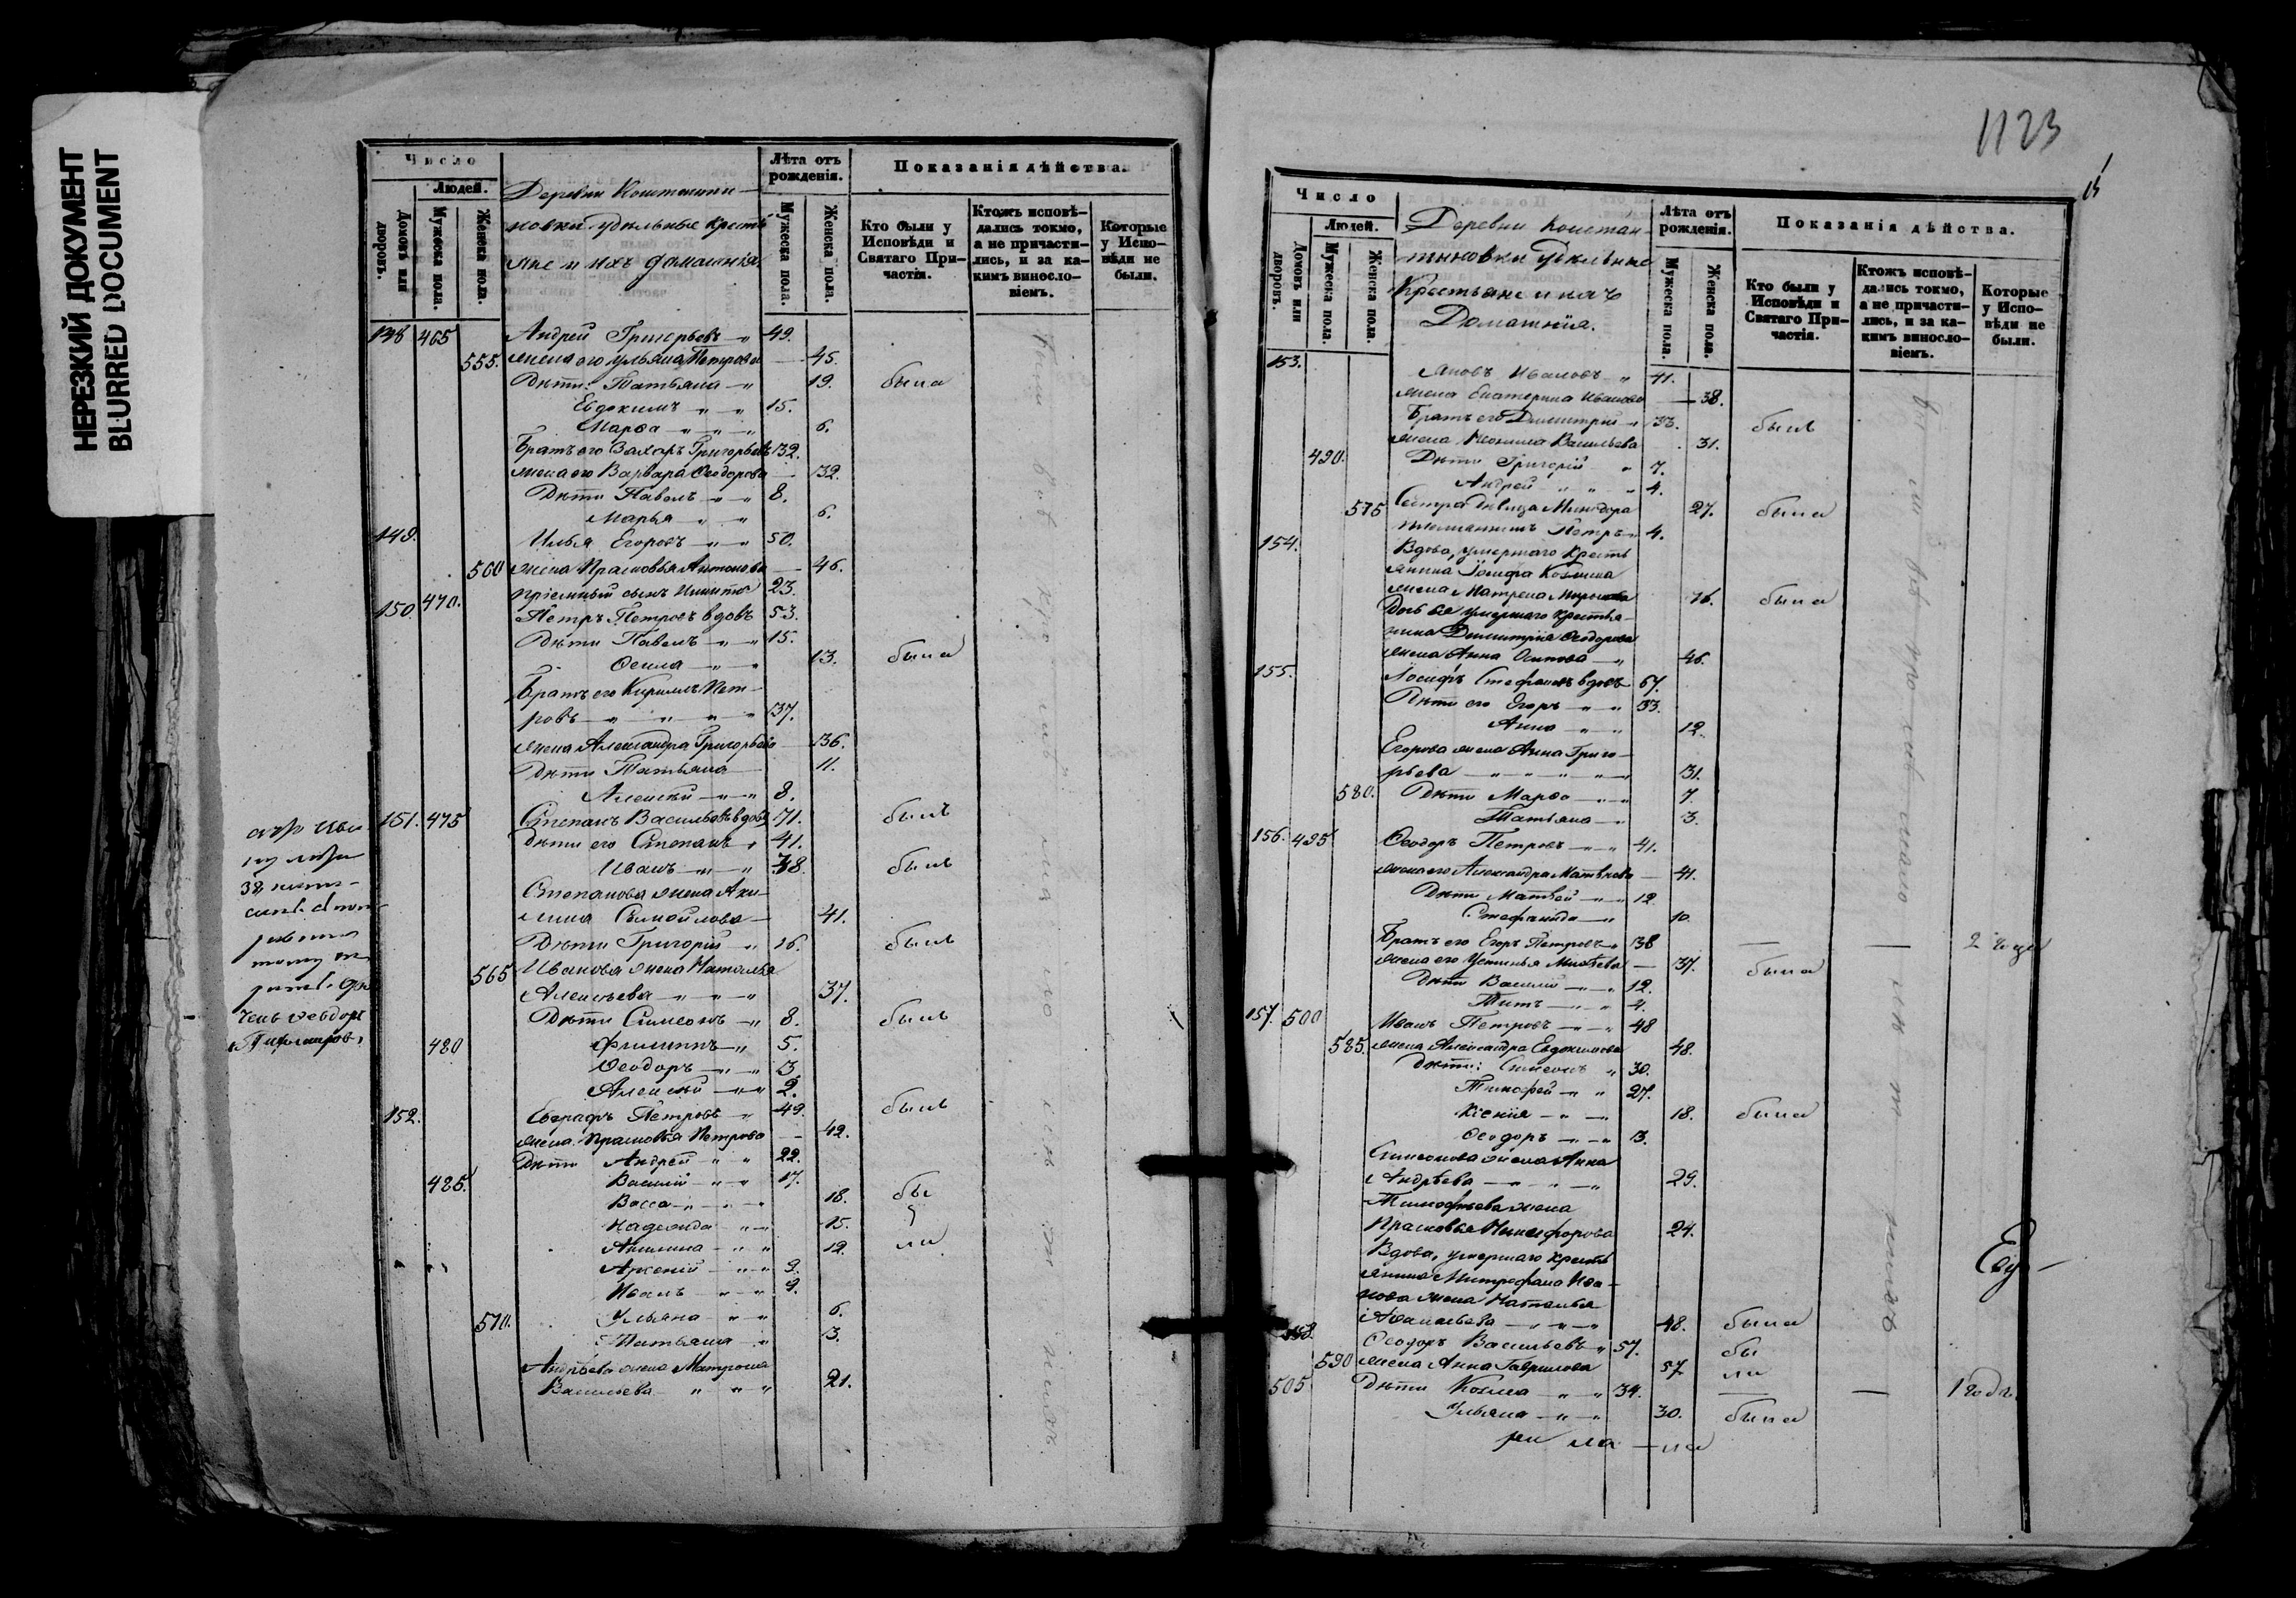 НЕРЕЗКИЙ ДОКУМЕНТ
BLURRED DOCUMENT
Число
Людей.
Домовъ или дворовъ.
Мужеска пола.
Женска пола.
Деревни Константи-
новки удѣльные кресть
яне и ихъ домашнія.
Лѣта отъ рожденія.
Мужеска пола.
Женска пола.
Показанія дѣйства.
Кто были у Исповѣди и Святаго При-частія.
Ктожъ исповѣ-дались токмо, а не причасти-лись, и за ка-кимъ виносло-віемъ.
Которые у Испо-вѣди не были.
148 465 Андрей Григорьевъ 49.
555. жена его Ульяна Петрова 45.
Дѣти: Татьяна 19. была
Евдокимъ 15.
Марѳа 6.
Братъ его Захаръ Григорьевъ 32.
жена его Варвара Ѳеодорова 32.
Дѣти Павелъ 8.
Марья 6.
149. Илья Егоровъ 50.
560 жена Прасковья Антонова 46.
пріемный сынъ Никита 23.
150. 470. Петръ Петровъ вдовъ 53.
Дѣти Павелъ 15.
13. была
Братъ его Кириллъ Пет-
ровъ 37.
жена Александра Григорьева 36.
Дѣти Татьяна 11.
Алексѣй 8.
151. 475 Степанъ Васильевъ вдовъ 71. былъ
Дѣти его Степанъ 41.
Иванъ 38. былъ
Степанова жена Аку-
лина Самойлова 41.
Дѣти Григорій 16. былъ
565 Иванова жена Наталья
Алексѣева 37.
Дѣти Симеонъ 8. былъ
480 Филиппъ 5.
Ѳеодоръ 3
Алексѣй 2.
152. Евграфъ Петровъ 49. былъ
жена Прасковья Петрова 42.
Дѣти Андрей 22.
485. Василій 17.
Васса 18. бы
Надежда 15.
Акилина 12. ли
Арсеній 9.
Иванъ 9.
Ульяна 6.
570. Татьяна 3.
Андрѣева жена Матрона
Васильева 21.
1123
Число
Людей.
Домовъ или дворовъ.
Мужеска пола.
Женска пола.
Деревни Констан-
тиновки Удѣльные
Крестьяне и ихъ
Домашнія.
Лѣта отъ рожденія.
Мужеска пола.
Женска пола.
Показанія дѣйства.
Кто были у Исповѣди и Святаго При-частія.
Ктожъ исповѣ-дались токмо, а не причасти-лись, и за ка-кимъ виносло-віемъ.
Которые у Испо-вѣди не были.
153. Яковъ Ивановъ 41.
жена Екатерина Иванова 38.
Братъ его Димитрій 33. былъ
жена Неонила Васильева 31.
490. Дѣти Григорій 7.
Андрей 4.
575 Сестра дѣвица Минодора 27. была
племянникъ Петръ 4.
154. Вдова, умершаго Кресть
янина Іосифа Козмина
жена Матрена Миронова 76. была
Дочь ея умершаго крестья-
нина Димитрія Ѳеодорова
жена Анна Осипова 46.
155. Іосифъ Стефановъ вдовъ 67.
Дѣти его Егоръ 33.
Анна 12.
Егорова жена Анна Григо-
рьева 31.
580. Дѣти Марѳа 7.
Татьяна 3.
156. 495 Ѳеодоръ Петровъ 41.
жена его Александра Матвѣева 41.
Дѣти Матвей 12
Стефанида 10.
Братъ его Егоръ Петровъ 38 — — 2 года
жена его Устинья Михѣева 37. была
Дѣти Василій 12.
Титъ 4.
157. 500 Иванъ Петровъ 48
585. жена Александра Евдокимова 48.
Дѣти: Симеонъ 30.
Тимофей 27.
Ксенія 18. была
Ѳеодоръ 13.
Симеонова жена Анна
Андрѣева 29.
Тимофѣева жена
Прасковья Никифорова 24.
Вдова, умершаго кресть
янина Митрофана Ива-
нова жена Наталья
48. была
158. Ѳеодоръ Васильевъ 57. бы
590 жена Анна Гаврилова 57 ли
505 Дѣти Козма 34. — — 1 годъ.
Ульяна 30. была